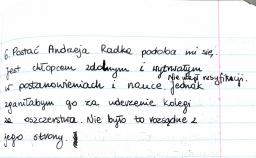 6. Postać Andrzeja Radka podoba mi się.
Jest chłopcem zdolnym i wytrwałym
w postanowieniach i nauce. Nie znał rezygnacji. Jednak
zganiłabym go za uderzenie kolegi
za oszczerstwa. Nie było to rozsądne z
jego strony.